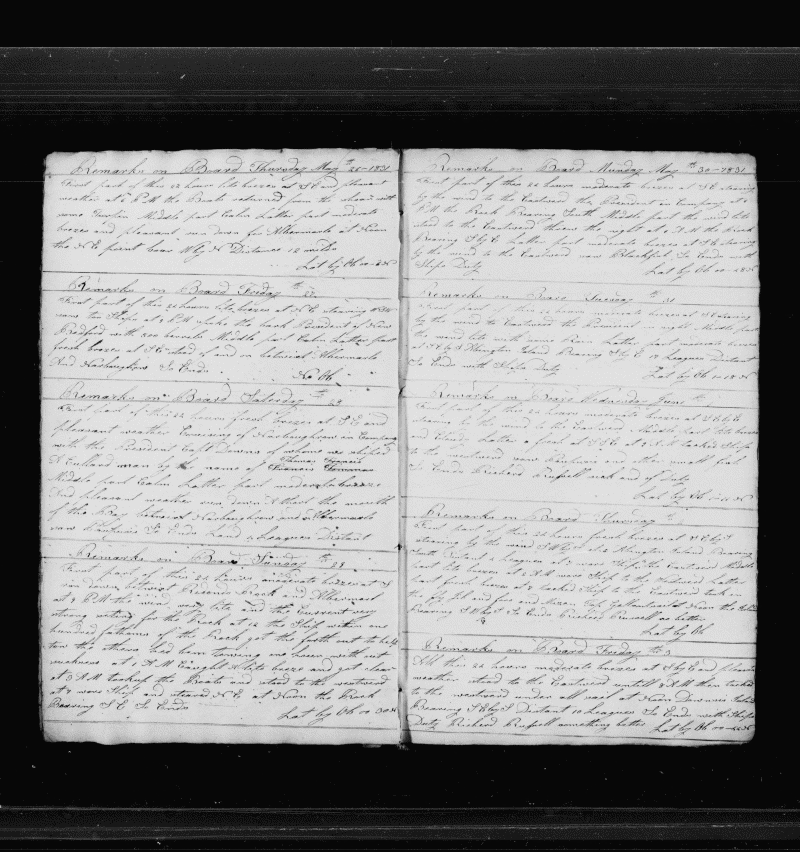 Remarks on Board Thursday May th 26-1831
First part of this 24 hours lite breezes at S E and pleasant
weather at 6 P M the Boats returned from the shore with
some Turpin Middle part Calm Latter part moderate
breezes and pleasant run down for Albermarle at Noon
the N E point bore W by N Distance 12 miles
Lat by Ob 00
Remarks on Board Friday th 27
First part of this 24 hours lite breezes at S E stearing
wore the Ship at 6 P M spoke the bark President of New
Bedford with barrels Middle part Calm Latter part
fresh breeze at S E stood of and on between Albermarle
And Narbarghrow So Ends
No Ob
Remarks on Board Saturday th 28
First part of this 24 hours fresh breezes at S E and
pleasant weather Cruising of Narbarghrow in Company
with the President Capt Downs of whome we shiped
A England man by the name of Thomas Francis
Middle part Calm Latter part moderate breezes
And pleasant weather run down A thort the mouth
of the Bay between Narbarghrow and Albermarle
saw So Ends Land 2 Leagues Distant
Remarks on Board Sunday th 29
First part of this 24 hours moderate breezes at S
run down betwixt Rock and Albermarl
at 8 P M the wind very lite and the Current very
strong seting for the Rock at 12 the Ship within one
hundred fathoms of the Rock got the forth boat to help
tow the others had been towing one hour with out
at 1 A M Caught A lite breeze and got clear
at 3 A M tookup the Boats and stood to the westward
at 8 wore Ship and steared N E at Noon the Rock
Bearing S E So Ends
Lat by Ob 00 30 N
Remarks on Board Munday May th 30-1831
First part of this 24 hours moderate breezes at S E stearing
by the wind to the Eastward the President in Company at 6
P M the Rock Bearing South Middle part the wind lite
stood to the Eastward threw the night at 6 A M the Rock
Bearing S by E Latter part moderate breezes at S E stearing
by the wind to the Eastward saw Blackfish So Ends with
Ships Duty
Lat by Ob 00
Remarks on Board Tuesday th 31
First part of this 24 hours moderate breezes at S E stearing
by the wind to Eastward the President in sight Middle part
the wind lite with some Rain Latter part moderate breezes
at S E Abington Island Bearing S by E 12 Leagues Distant
So Ends with Ships Duty
Lat by Ob
Remarks on Board Wednesday June th 1
First part of this 24 hours moderate breezes at S E by E
stearing by the wind to the Eastward Middle part lite breezes
and Cloudy Latter a fresh at S S E at 9 A M tacked Ship
to the westward saw and other small fish
So Ends Richard Russell sick and of Duty
Lat by Ob
Remarks on Board Thursday th 2
First part of this 24 hours fresh breezes at S E by S
stearing by the wind Abington Island Bearing
South Distant 4 Leagues at wore Ship to the Eastward Middle
part lite breezes at 2 A M wore Ship to the Westward Latter
part fresh breezes at 8 tacked Ship to the Eastward took in
the fly jib and fore and mizen Top Gallantsails at Noon the Island
Bearing So Ends Richard Russell no better
Lat by Ob
Remarks on Board Friday th 3
All this 24 hours moderate breezes at S by E and pleasant
weather stood to the Eastward untill 8 A M then tacked
to the westward under all sail at Noon Island
Bearing S E by S Distant 10 Leagues So Ends with Ships
Duty Richard Russell something better Lat by Ob 00